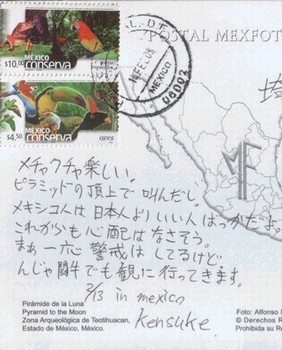 POSTAL MEXFOT
$10.50
MÉXICO
conserva
MÉXICO
conserva
$4.50
aves
MEXICO
06002
MF
メチャクチャ楽しい。
ピラミッドの頂上で叫んだし。
メキシコ人は日本人よりいい人ばっかだよ。
これからも心配はなさそう。
まぁ一応警戒はしてるけど。
んじゃ闘牛でも観に行ってきます。
2/13 in mexico
Kensuke
Pirámide de la Luna
Pyramid to the Moon
Zona Arqueológica de Teotihuacan,
Estado de México, México.
Foto: Alfonso
© Derechos R
Prohibida su R